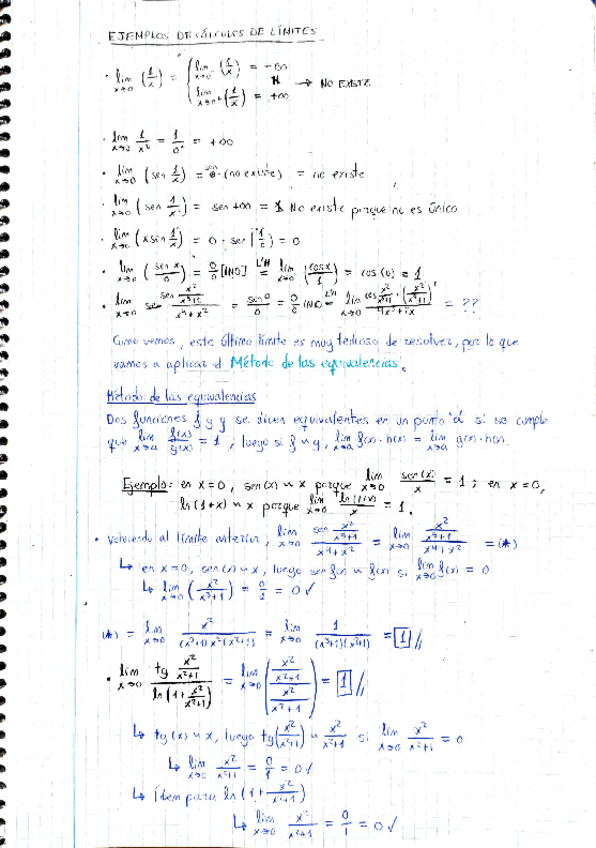 EJEMPLOS DE CÁLCULOS DE LÍMITES
· lim x→0 (1/x) = { lim x→0⁻ (1/x) = -∞
lim x→0⁺ (1/x) = +∞ → NO EXISTE
· lim x→0 1/x² = 1/0² = +∞
· lim x→0 (sen 1/x) = (no existe) = no existe
· lim x→0 (sen 1/x) = sen +∞ = No existe porque no es único
· lim x→0 (x sin 1/x) = 0 · sen(1/0) = 0
· lim x→0 (sen x/0) = 0/0 [IND] L'H = lim x→0 (cos x/1) = cos(0) = 1
· lim x→0 = sen 0/0 = 0/0 IND L'H = lim x→0 = ??
Como vemos, este último límite es muy tedioso de resolver, por lo que
vamos a aplicar el Método de las equivalencias.
Método de las equivalencias
Dos funciones f y g se dicen equivalentes en un punto "a" si se cumple
que lim x→a f(x)/g(x) = 1, luego si f ~ g, lim x→a f(x)·h(x) = lim x→a g(x)·h(x).
Ejemplo: en x=0, sen(x) ~ x porque lim x→0 sen(x)/x = 1; en x=0,
ln(1+x) ~ x porque lim x→0 ln(1+x)/x = 1.
· volviendo al límite anterior, lim x→0 (sen x²/(x³+1))/(x⁴+x²) = lim x→0 (x²/(x³+1))/(x⁴+x²) = (*)
↳ en x=0, sen(x) ~ x, luego sen f(x) ~ f(x) si lim x→0 f(x) = 0
↳ lim x→0 (x²/(x³+1)) = 0/1 = 0 ✓
(*) = lim x→0 x²/((x³+1)x²(x²+1)) = lim x→0 1/((x³+1)(x²+1)) = 1 //
· lim x→0 (tg x²/(x²+1))/(ln(1+x²/(x²+1))) = lim x→0 ((x²/(x²+1))/(x²/(x²+1))) = 1 //
↳ tg(x) ~ x, luego tg(x²/(x²+1)) ~ x²/(x²+1) si lim x→0 x²/(x²+1) = 0
↳ lim x→0 x²/(x²+1) = 0/1 = 0 ✓
↳ Ídem para ln(1+x²/(x²+1))
↳ lim x→0 x²/(x²+1) = 0/1 = 0 ✓